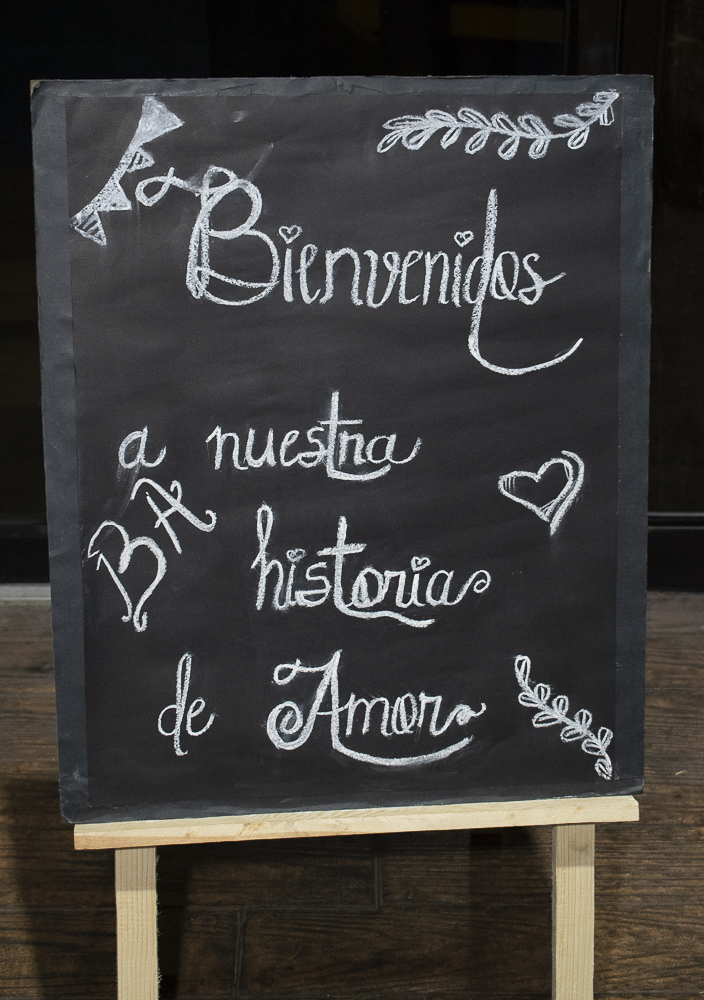 Bienvenidos
a nuestra
BA
historia
de Amor